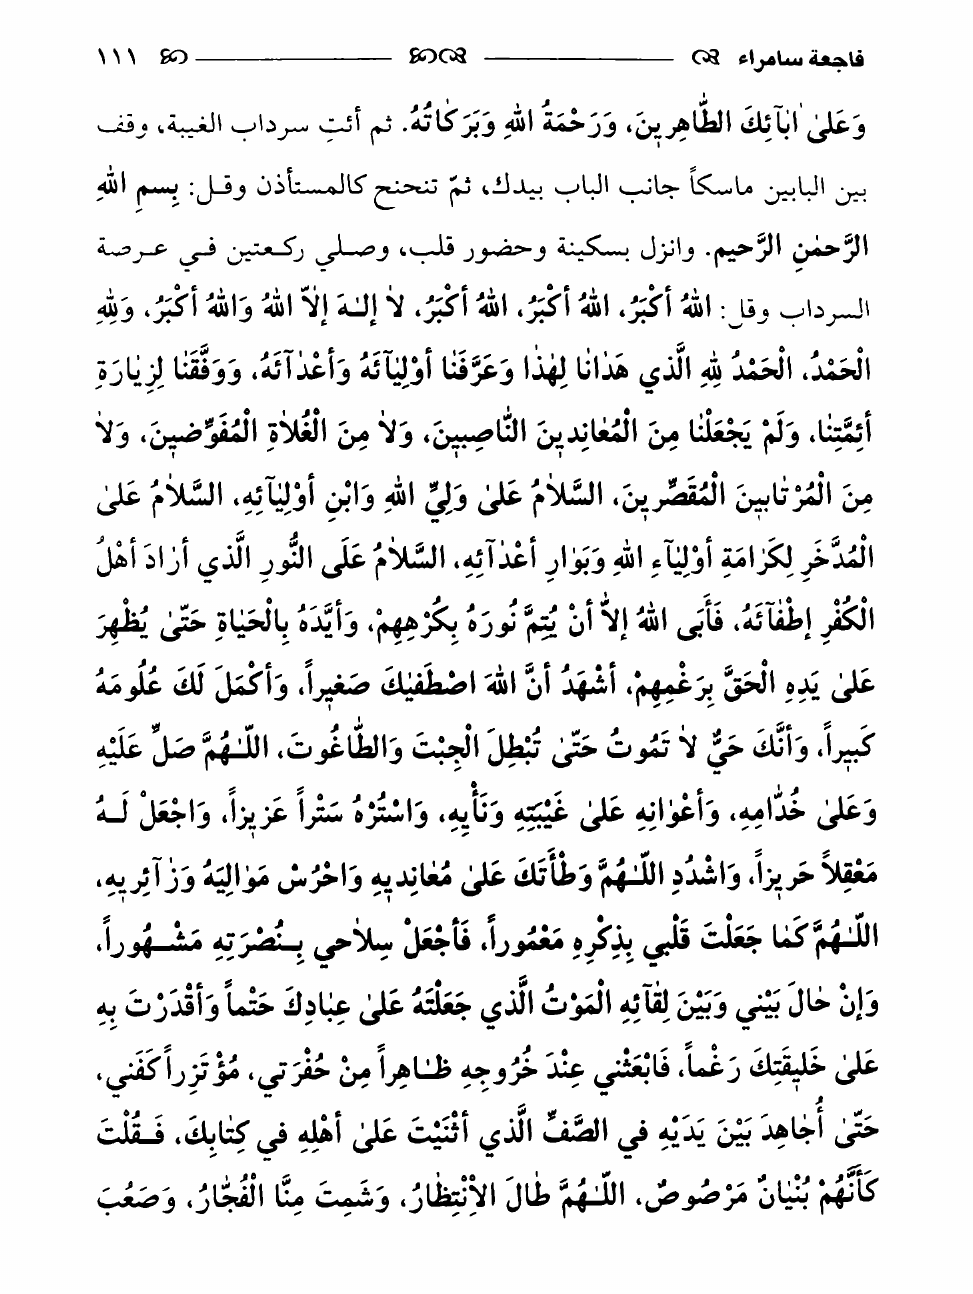 فاجعة سامراء ١١١
وَعَلىٰ اٰبٰآئِكَ الطّٰاهِرِينَ، وَرَحْمَةُ اللهِ وَبَرَكٰاتُهُ. ثم أئتِ سرداب الغيبة، وقف
بين البابين ماسكاً جانب الباب بيدك، ثمّ تنحنح كالمستأذن وقل: بِسمِ اللهِ
الرَّحمٰنِ الرَّحيم. وانزل بسكينة وحضور قلب، وصلي ركعتين في عرصة
السرداب وقل: اللهُ أكْبَرُ، اللهُ أكْبَرُ، اللهُ أكْبَرُ، لاٰ إلـٰهَ إلاّٰ اللهُ وَاللهُ أكْبَرُ، وَللهِ
الْحَمْدُ، الْحَمْدُ للهِ الَّذي هَدٰانٰا لِهٰذٰا وَعَرَّفَنٰا أوْلِيٰآئَهُ وَأعْدٰآئَهُ، وَوَفَّقَنٰا لِزِيٰارَةِ
أئِمَّتِنٰا، وَلَمْ يَجْعَلْنٰا مِنَ الْمُعٰانِدِينَ النّٰاصِبِينَ، وَلاٰ مِنَ الْغُلاٰةِ الْمُفَوِّضِينَ، وَلاٰ
مِنَ الْمُرْتٰابِينَ الْمُقَصِّرِينَ، السَّلاٰمُ عَلىٰ وَلِيِّ اللهِ وَابْنِ أوْلِيٰآئِهِ، السَّلاٰمُ عَلىٰ
الْمُدَّخَرِ لِكَرٰامَةِ أوْلِيٰآءِ اللهِ وَبَوٰارِ أعْدٰآئِهِ، السَّلاٰمُ عَلَى النُّورِ الَّذي أرٰادَ أهْلُ
الْكُفْرِ إطْفٰآئَهُ، فَأَبَى اللهُ إلاّٰ أنْ يُتِمَّ نُورَهُ بِكُرْهِهِمْ، وَأيَّدَهُ بِالْحَيٰاةِ حَتّىٰ يُظْهِرَ
عَلىٰ يَدِهِ الْحَقَّ بِرَغْمِهِمْ، أشْهَدُ أنَّ اللهَ اصْطَفٰيكَ صَغيراً، وَأكْمَلَ لَكَ عُلُومَهُ
كَبيراً، وَأنَّكَ حَيٌّ لاٰ تَمُوتُ حَتّىٰ تُبْطِلَ الْجِبْتَ وَالطّٰاغُوتَ، اللّـٰهُمَّ صَلِّ عَلَيْهِ
وَعَلىٰ خُدّٰامِهِ، وَأعْوٰانِهِ عَلىٰ غَيْبَتِهِ وَنَأْيِهِ، وَاسْتُرْهُ سَتْراً عَزيزاً، وَاجْعَلْ لَـهُ
مَعْقِلاً حَرِيزاً، وَاشْدُدِ اللّـٰهُمَّ وَطْأَتَكَ عَلىٰ مُعٰانِدِيهِ وَاحْرُسْ مَوٰالِيَهُ وَزٰآئِرِيهِ،
اللّـٰهُمَّ كَمٰا جَعَلْتَ قَلْبي بِذِكْرِهِ مَعْمُوراً، فَأجْعَلْ سِلاٰحي بِـنُصْرَتِهِ مَشْـهُوراً،
وَإنْ حٰالَ بَيْني وَبَيْنَ لِقٰآئِهِ الْمَوْتُ الَّذي جَعَلْتَهُ عَلىٰ عِبٰادِكَ حَتْماً وَأقْدَرْتَ بِهِ
عَلىٰ خَليقَتِكَ رَغْماً، فَابْعَثْني عِنْدَ خُرُوجِهِ ظـٰاهِراً مِنْ حُفْرَتي، مُؤْتَزِراً كَفَني،
حَتّىٰ أُجٰاهِدَ بَيْنَ يَدَيْهِ في الصَّفِّ الَّذي أثْنَيْتَ عَلىٰ أهْلِهِ في كِتٰابِكَ، فَـقُلْتَ
كَأَنَّهُمْ بُنْيٰانٌ مَرْصُوصٌ، اللّـٰهُمَّ طٰالَ الإنْتِظٰارُ، وَشَمِتَ مِنَّا الْفُجّٰارُ، وَصَعُبَ